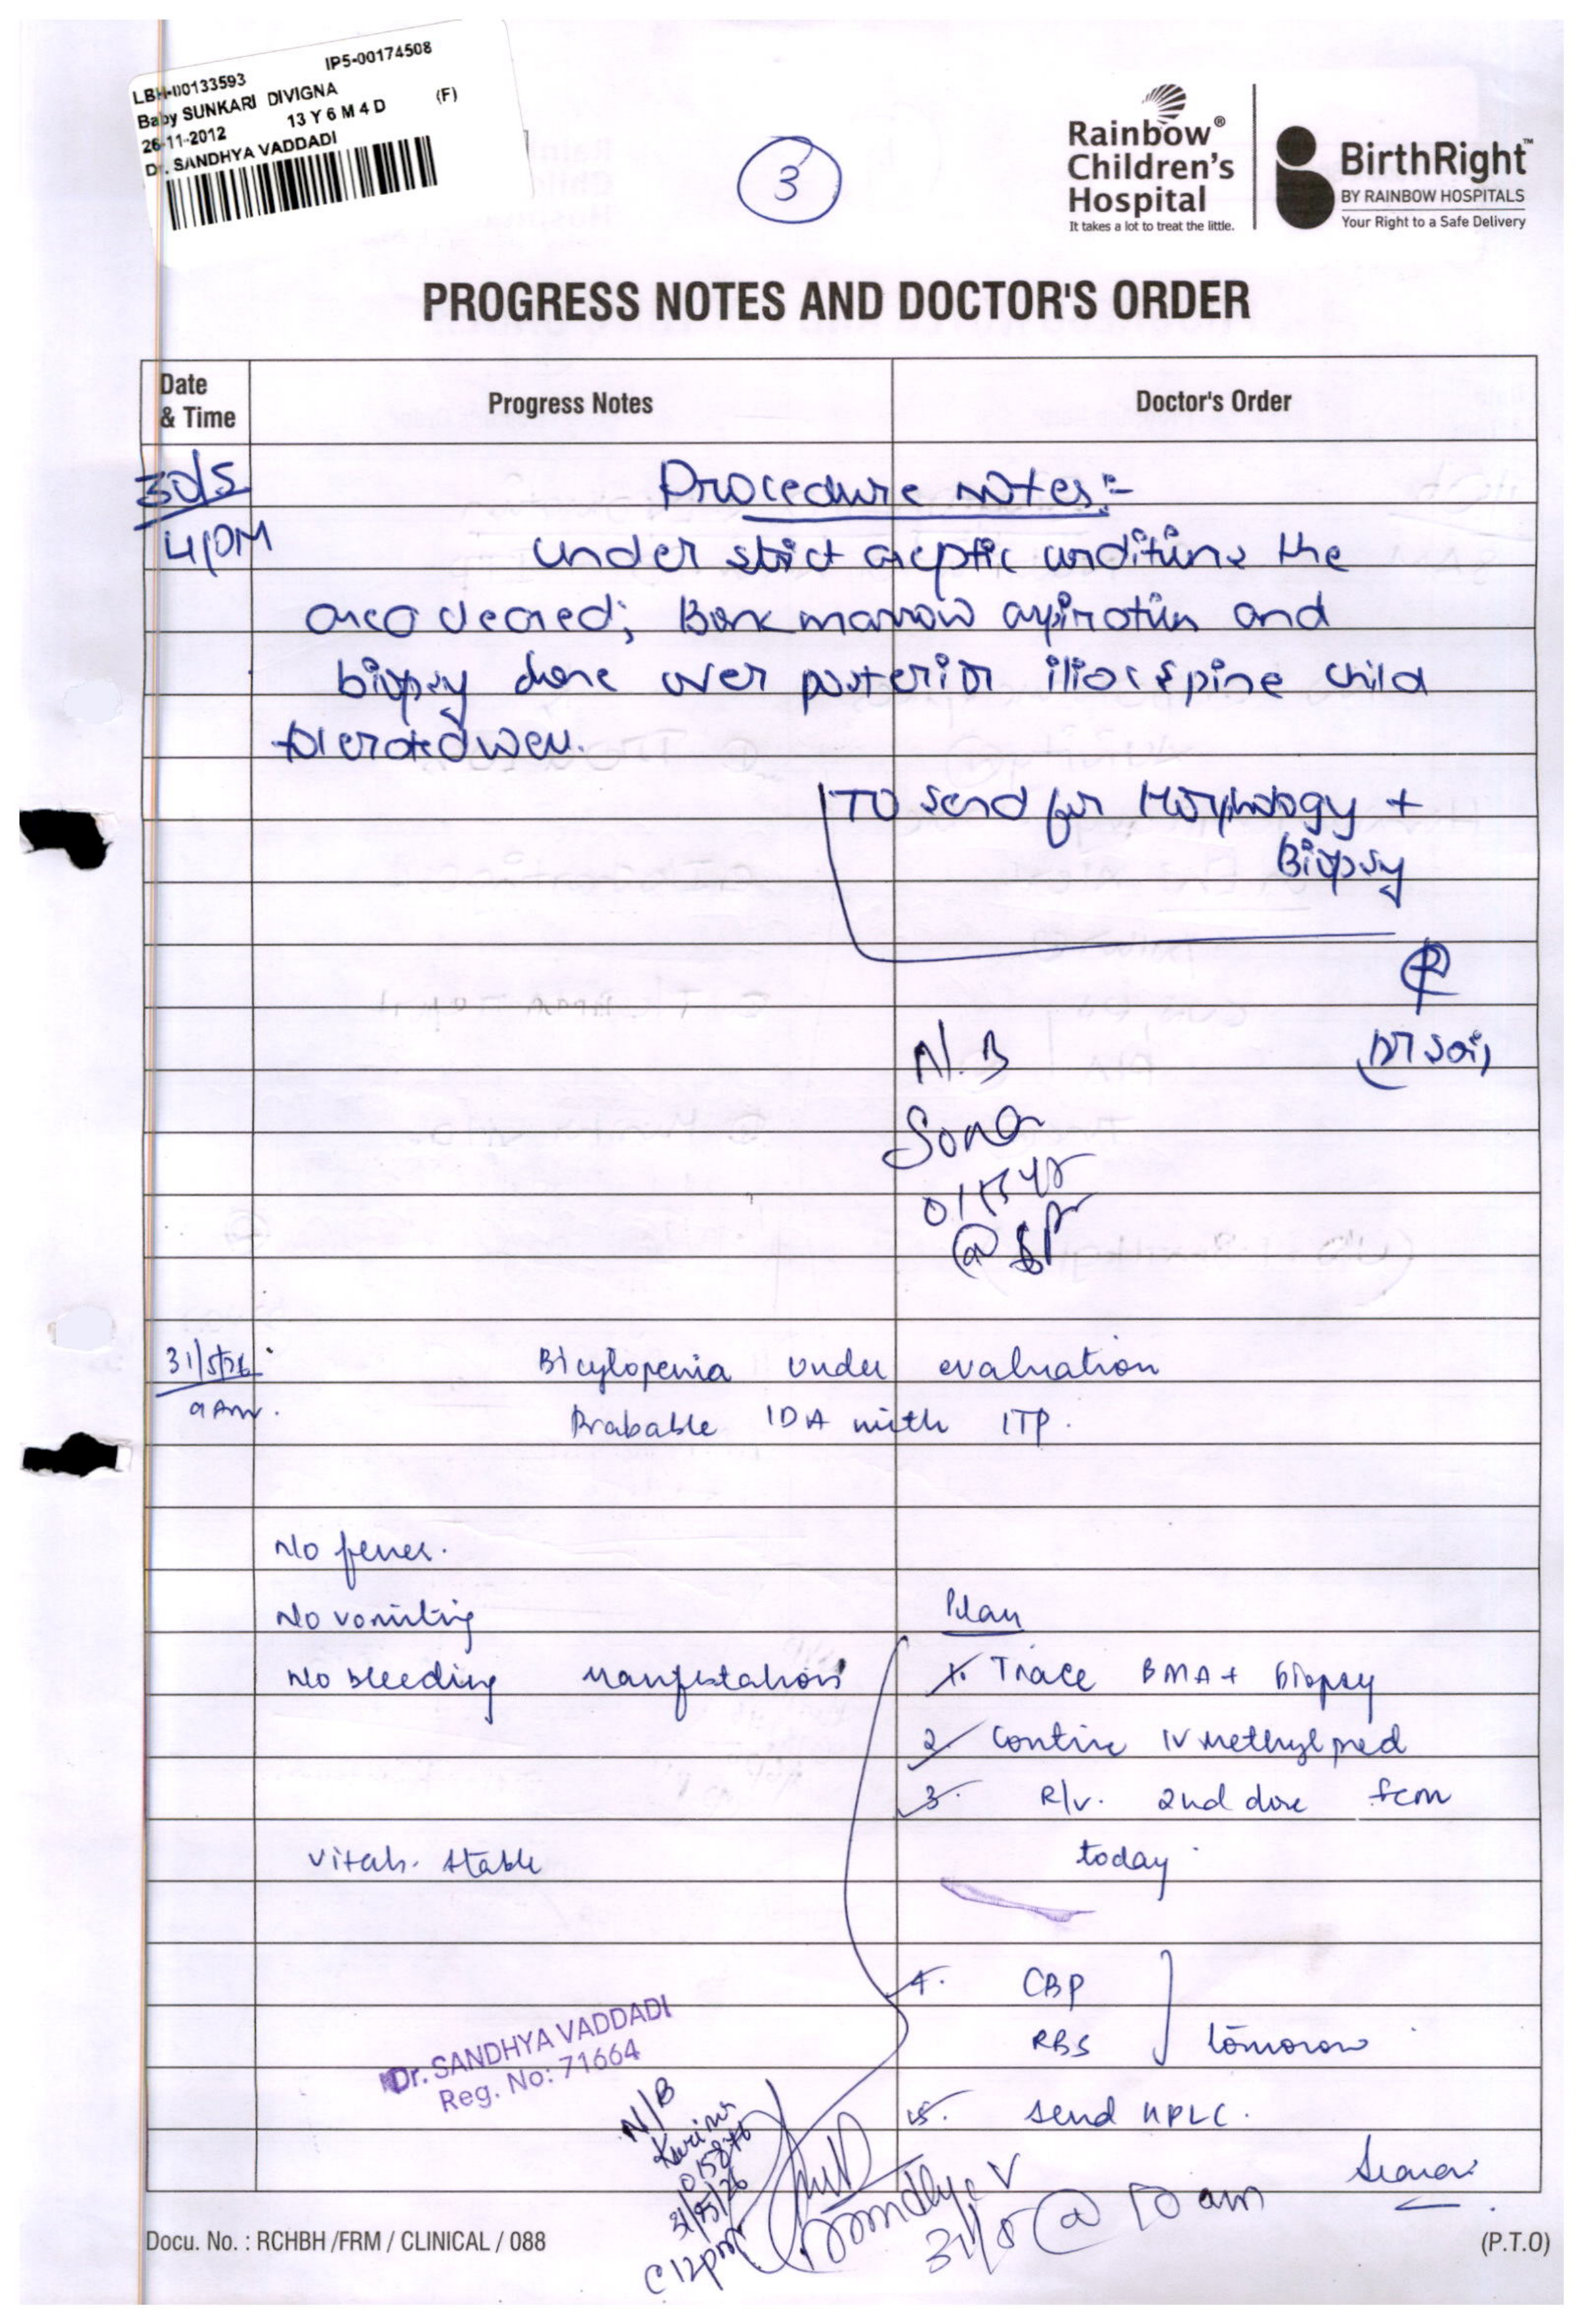 LBH-00133593 IP5-00174508
Baby SUNKARI DIVIGNA (F)
26-11-2012 13 Y 6 M 4 D
Dr. SANDHYA VADDADI
3
Rainbow®
Children's
Hospital
It takes a lot to treat the little.
BirthRight™
BY RAINBOW HOSPITALS
Your Right to a Safe Delivery
PROGRESS NOTES AND DOCTOR'S ORDER
Date
& Time
Progress Notes
Doctor's Order
30/5
4PM
Procedure notes:-
Under strict aseptic conditions the
area cleaned; Bone marrow aspiration and
biopsy done over posterior iliac spine child
tolerated well.
To send for Morphology +
Biopsy
Dr Sai
N.B
Sona
31/5/26
9 Am.
Bicytopenia under evaluation
Probable IDA with ITP.
No fever.
No vomiting
No bleeding manifestations
vitals. stable
Plan
1. Trace BMA + biopsy
2. Continue IV Methylpred
3. R/v. 2nd dose fcm
today
4. CBP
RBS
tomorow
5. send HPLC.
Dr. SANDHYA VADDADI
Reg. No: 71664
N/B
31/05/26
@12pm
Sandhya V
31/5 @ 10 am
Docu. No. : RCHBH /FRM / CLINICAL / 088
(P.T.O)